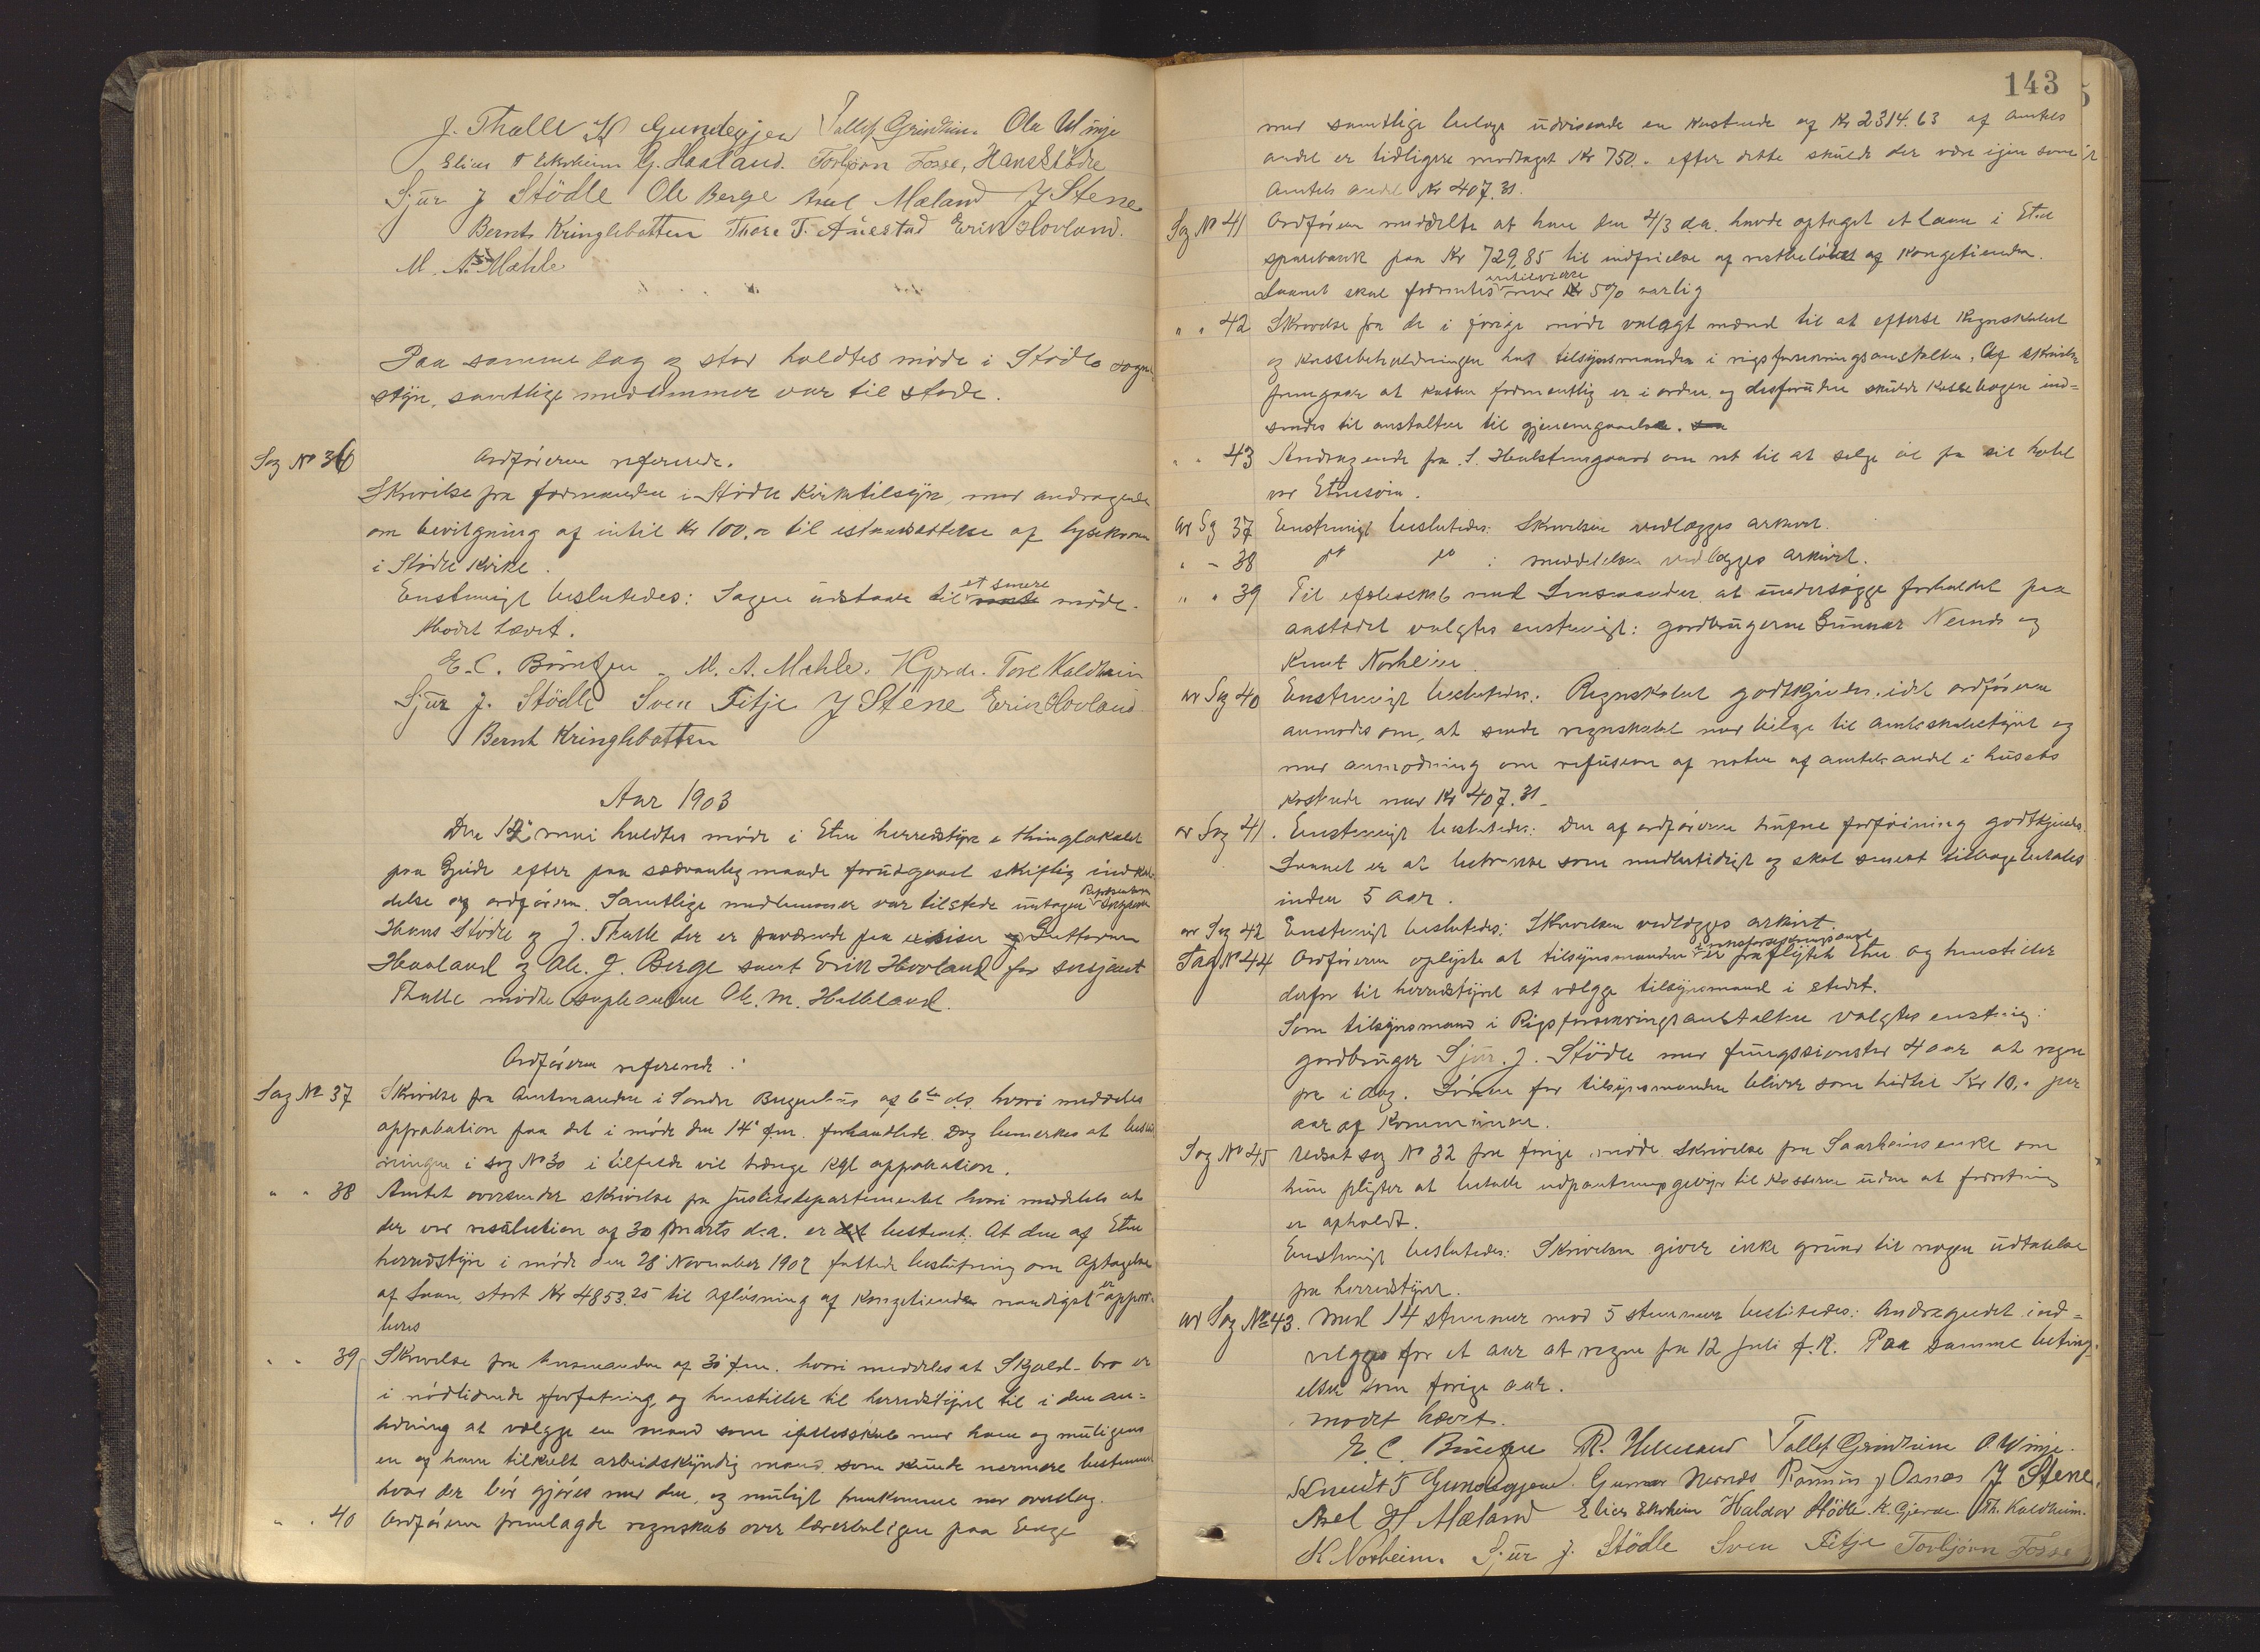 J. Thalle K Gundegjerd Tallef Grindheim Ola Winje
Elias T Ekrheim G. Haaland. Torbjørn Fosse, Hans Stødle
Sjur J Stödle Ole Berge Axel Mæland J Stene
Bernt Kringlebotten Thore T. Aarestad Erik Hovland.
M. A. Mæhle
Paa samme dag og sted holdtes møde i Stødle sogne-
styre, samtlige medlemmer var til stede.
Sag No 36 Ordføreren refererede.
Skrivelse fra formanden i Stødle Kirketilsyn, med andragende
om bevilgning af intil Kr 100,00 til istandsættelse af lysekronen
i Stødle Kirke.
Enstemigt besluttedes: Sagen udstaar til et senere møde.
Mødet hævet.
E. C. Børretzen M. A. Mehle. K Gjerde. Tore Kaldheim
Sjur J. Stödle Sven Fitje J Stene Erik Hovland
Bernt Kringlebotten
Aar 1903
Den 12 mai holdtes møde i Etne herredstyre i thinglokalet
paa Gjerde efter paa sædvanlig maade forudgaaet skriftlig indkal-
delse af ordføreren. Samtlige medlemmer var tilstede untagen Repræsentanten
Hans Stødle og J. Thalle der er fraværende paa reiser Guttorm
Haaland og Ole. J. Berge samt Erik Hovland for sersjant
Thalle mødte supleanten Ole. M. Helleland.
Ordføreren refererede:
Sag No 37 Skrivelse fra Amtmanden i Søndre Bergenhus af 6te ds. hvori meddeles
approbation paa det i møde den 14' f.m. forhandlede. Dog bemerkes at beslut-
ningen i sag No 30 i tilfælde vil trænge Kgl approbation.
" " 38 Amtet oversender skrivelse fra Justitsdepartementet hvori meddeles at
der ved resolution af 30 Marts d.a. er bestemt: At den af Etne
herredstyre i møde den 28' November 1902 fattede beslutning om Optagelse
af Laan, stort Kr 4853.25 til afløsning af Kongetienden naadigst er appro-
beres
" " 39 Skrivelse fra lensmanden af 30' f.m. hvori meddeles at Skjold-bro er
i nødlidende forfatning og henstiller til herredstyret til i den an-
ledning at vælge en mand som i fællesskab med ham og muligens
en af ham tilkalt arbeidskyndig mand som kunde nærmere bestemme
hvad der bør gjøres med den, og muligt fremkomme med overslag.
" " 40 Ordføreren fremlagde regnskab over lærerboligen paa Enge
143
med samtlige belage udvisende en kostende af Kr 2314.63 af amtets
andel er tidligere modtaget Kr 750.- efter dette skulde der være igjen som
Amtets andel Kr 407.31.
Sag No 41 Ordføreren meddelte at han den 4/3 d.a. havde optaget et laan i Etne
sparebank paa Kr 729,85 til indfrielse af restbeløbet af Kongetienden.
Laanet skal forrentes indtilvidere med 5% aarlig
" " 42 Skrivelse fra de i forige møde valgte mænd til at efterse Regnskabet
og kassebeholdningen hos tilsynsmanden i rigsforsikringsanstalten. Af skrivelsen
fremgaar at kassen formentlig er i orden og desforuden skulde kassebogen ind-
sendes til anstalten til gjenemgaaelse.
" " 43 Andragende fra S. Heulstensgaard om ret til at selge øl fra sit hotel
ved Etnesøen.
ad Sag 37 Enstemigt besluttedes: Skrivelsen vedlægges arkivet.
" - 38 do do : meddelelsen vedlægges arkivet.
" " 39 Til i fælesskab med Lensmanden at undersøgge forholdet paa
aastedet valgtes enstemigt: gardbrugerne Gunnar Nernes og
Knut Norheim.
ad Sag 40 Enstemigt besluttedes. Regnskabet godtkjendes idet ordføreren
anmodes om, at sende regnskabet med bilage til Amtsskolestyret og
med anmodning om refusion af resten af amtets andel i husets
kostende med Kr 407.31.
ad Sag 41. Enstemigt besluttedes: Den af ordføreren trufne forføining godtkjendes.
Laanet er at betragte som midlertidigt og skal senest tilbagebetales
inden 5 aar.
ad Sag 42 Enstemigt besluttedes: Skrivelsen vedlægges arkivet.
Sag No 44 Ordføreren oplyste at tilsynsmanden i rigsforsikringsanst er fraflyttet Etne og henstiller
derfor til herredstyret at vælgge tilsynsmand i stedet.
Som tilsynsmand i Rigsforsikringsanstalten valgtes enstemig:
gardbruger Sjur. J. Stödle med fungsionstid 4 aar at regne
fra i dag. Lønnen for tilsynsmanden bliver som hidtil Kr 10.- per
aar af Kommunen.
Sag No 45 Udsat sag No 32 fra forige møde skrivelse fra Saarheims enke om
hun pligter at betale udpantningsgebyr til kasseren uden at forretning
er afholdt.
Enstemigt besluttedes: Skrivelsen giver ikke grund til nogen udtalelse
fra herredstyret.
ad Sag No 43. Med 14 stemmer mod 5 stemmer besluttedes: Andragendet ind-
vilgges for et aar at regne fra 12 Juli f.k. Paa samme beting-
elser som forige aar.
Mødet hævet.
E. C. Børretzen R. Helleland Tallef Grindheim O. Winje.
Knudt T Gundegjerd. Gunnar Nernes Rasmus J Osnes J Stene,
Axel H Mæland Elias Ekrheim Haldor Stödle. K. Gjerde Th. Kaldheim.
K Norheim. Sjur J. Stödle Sven Fitje Torbjørn Fosse